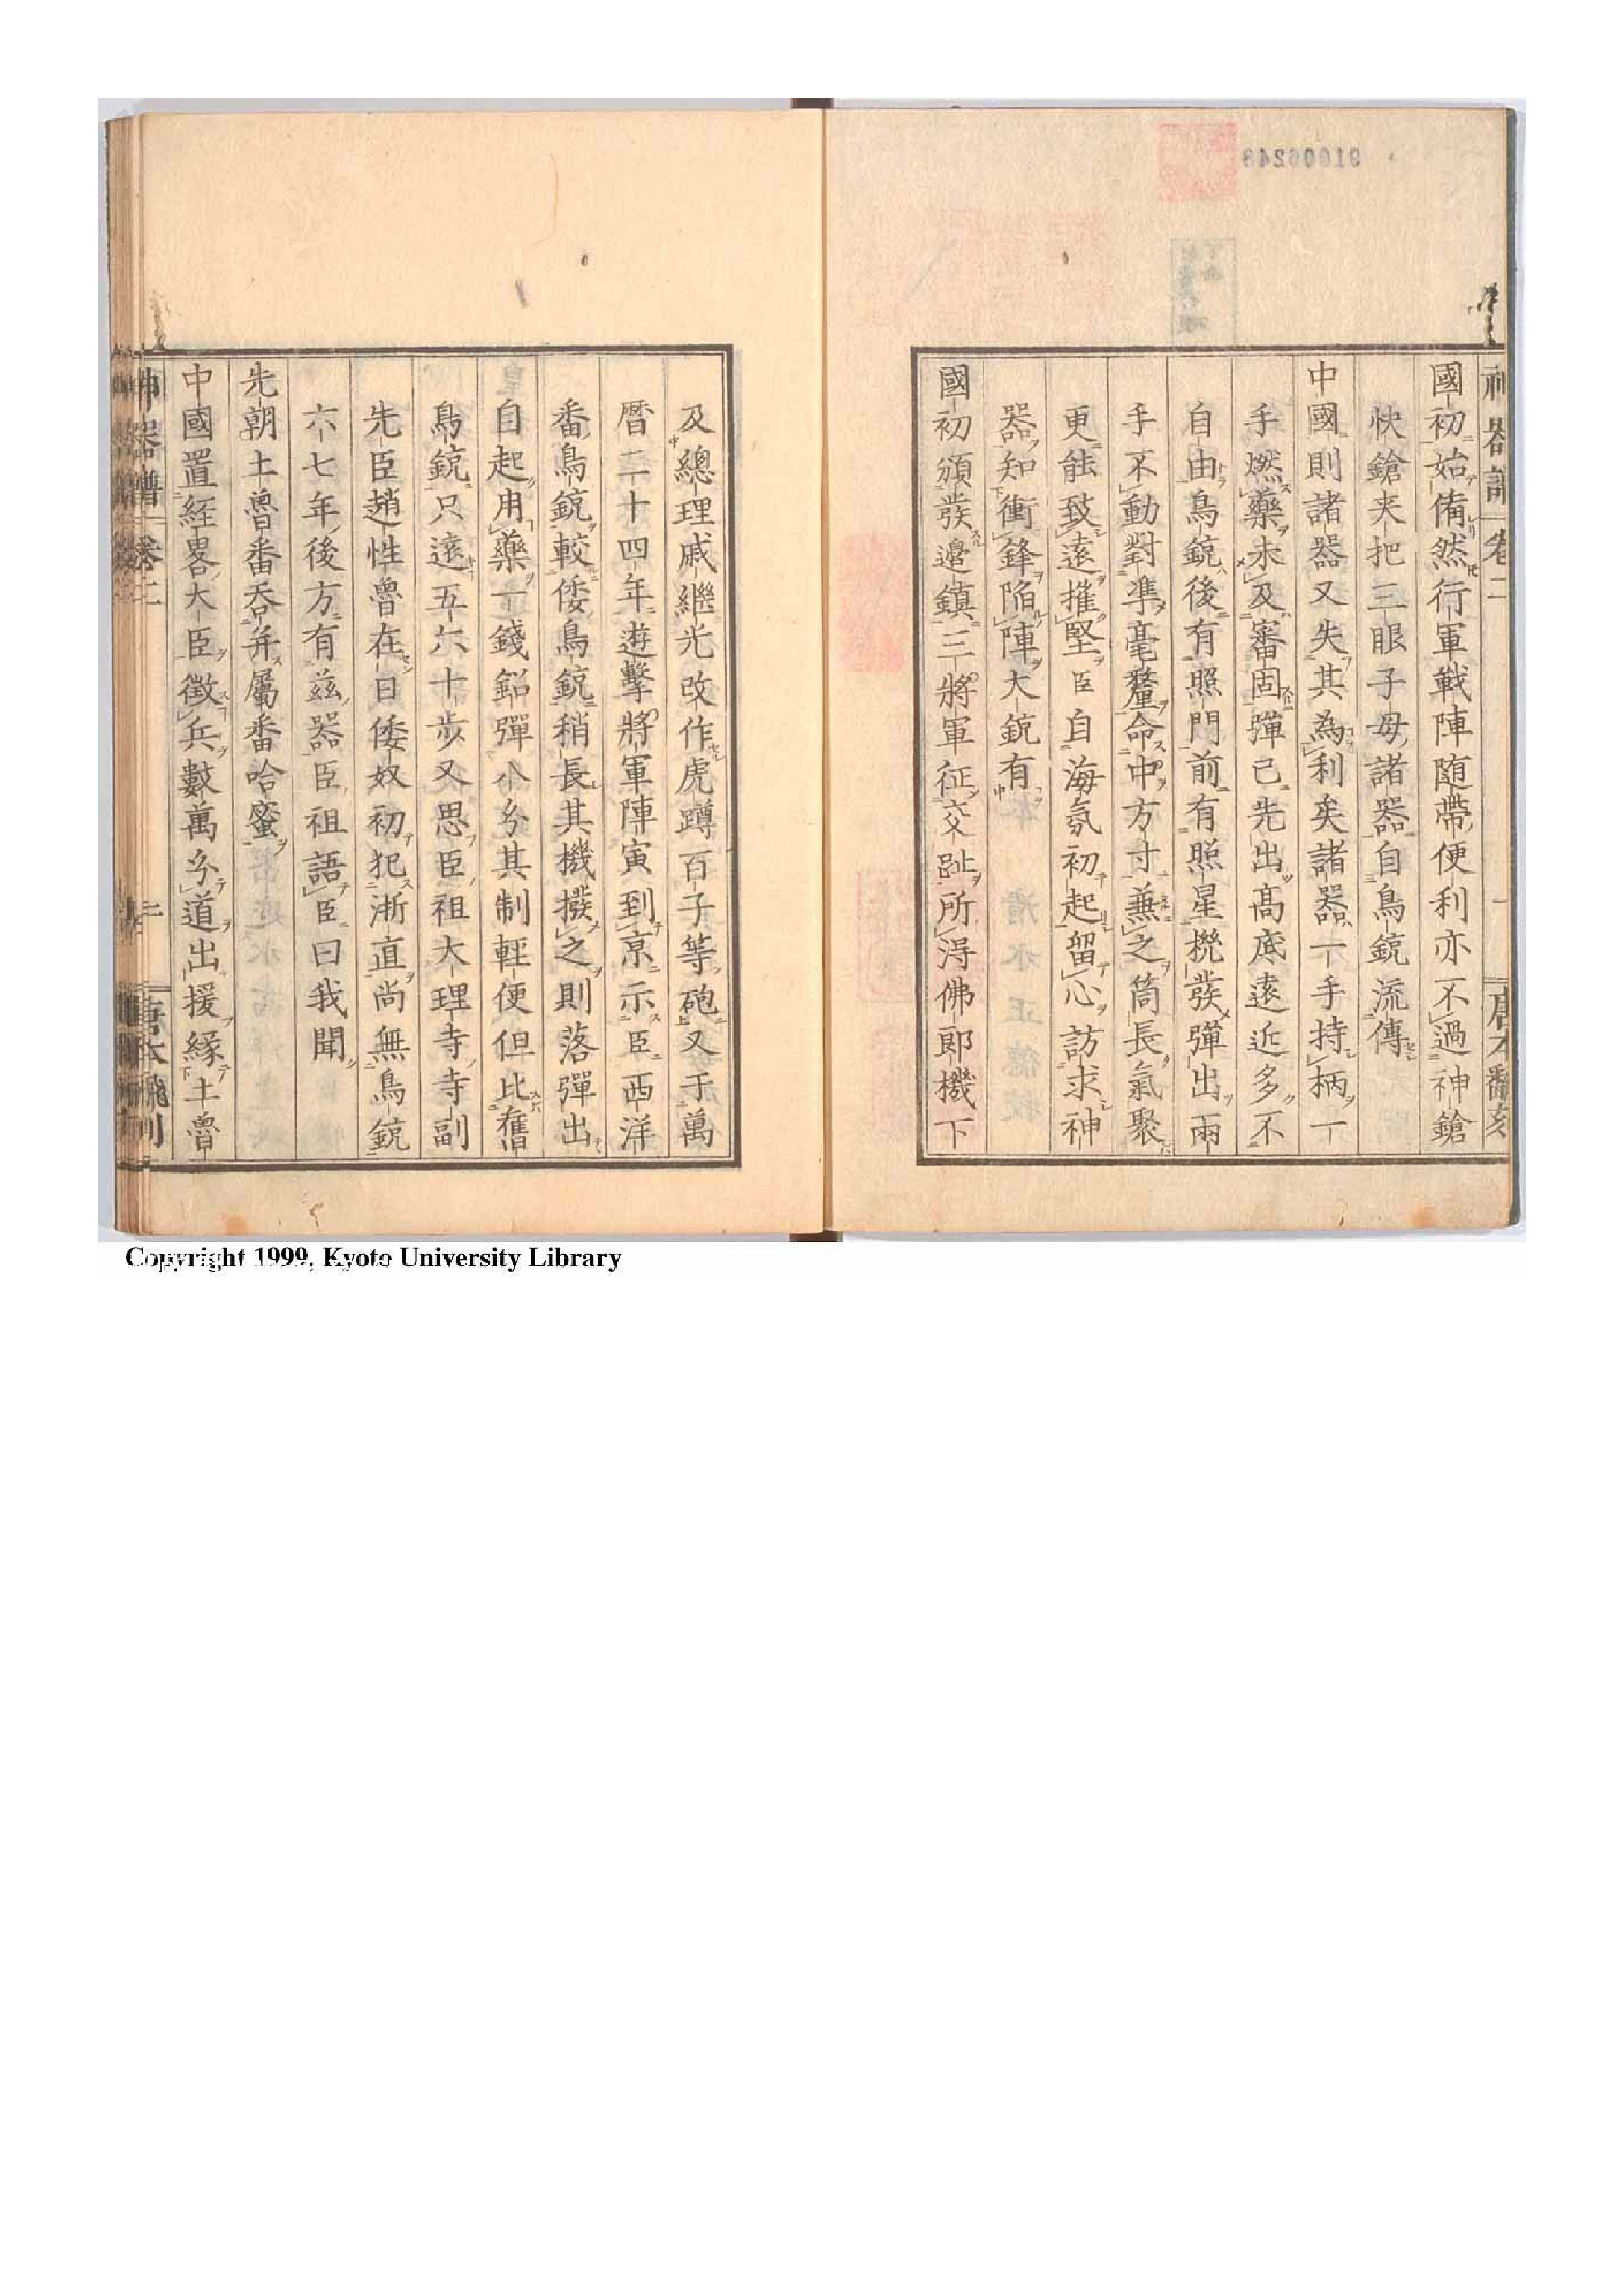 國初始備然行軍戰陣随帶便利亦不過神鎗
快鎗夹把三眼子母諸器自鳥銃流傳
中國則諸器又失其為利矣諸器一手持柄一
手燃藥未及審固彈已先出高底遠近多不
自由鳥銃後有照門前有照星機發彈出兩
手不動對準毫釐命中方寸兼之筒長氣聚
更能致遠摧堅臣自海氛初起留心訪求神
器知衝鋒陥陣大銃有
國初頒發邊鎮三將軍征交趾所淂佛郎機下
及總理戚繼光改作虎蹲百子等砲又于萬
曆二十四年遊擊將軍陣寅到京示臣西洋
番鳥銃較倭鳥銃稍長其機撥之則落彈出
自起用藥一錢鉛彈八分其制輕便但比舊
鳥銃只遠五六十步又思臣祖大理寺寺副
先臣趙性魯在日倭奴初犯浙直尚無鳥銃
六七年後方有茲器臣祖語臣曰我聞
先朝土魯番吞并屬番哈蜜
中國置経畧大臣徵兵數萬分道出援縁土魯
神器譜 卷二
二
Copyright 1999, Kyoto University Library